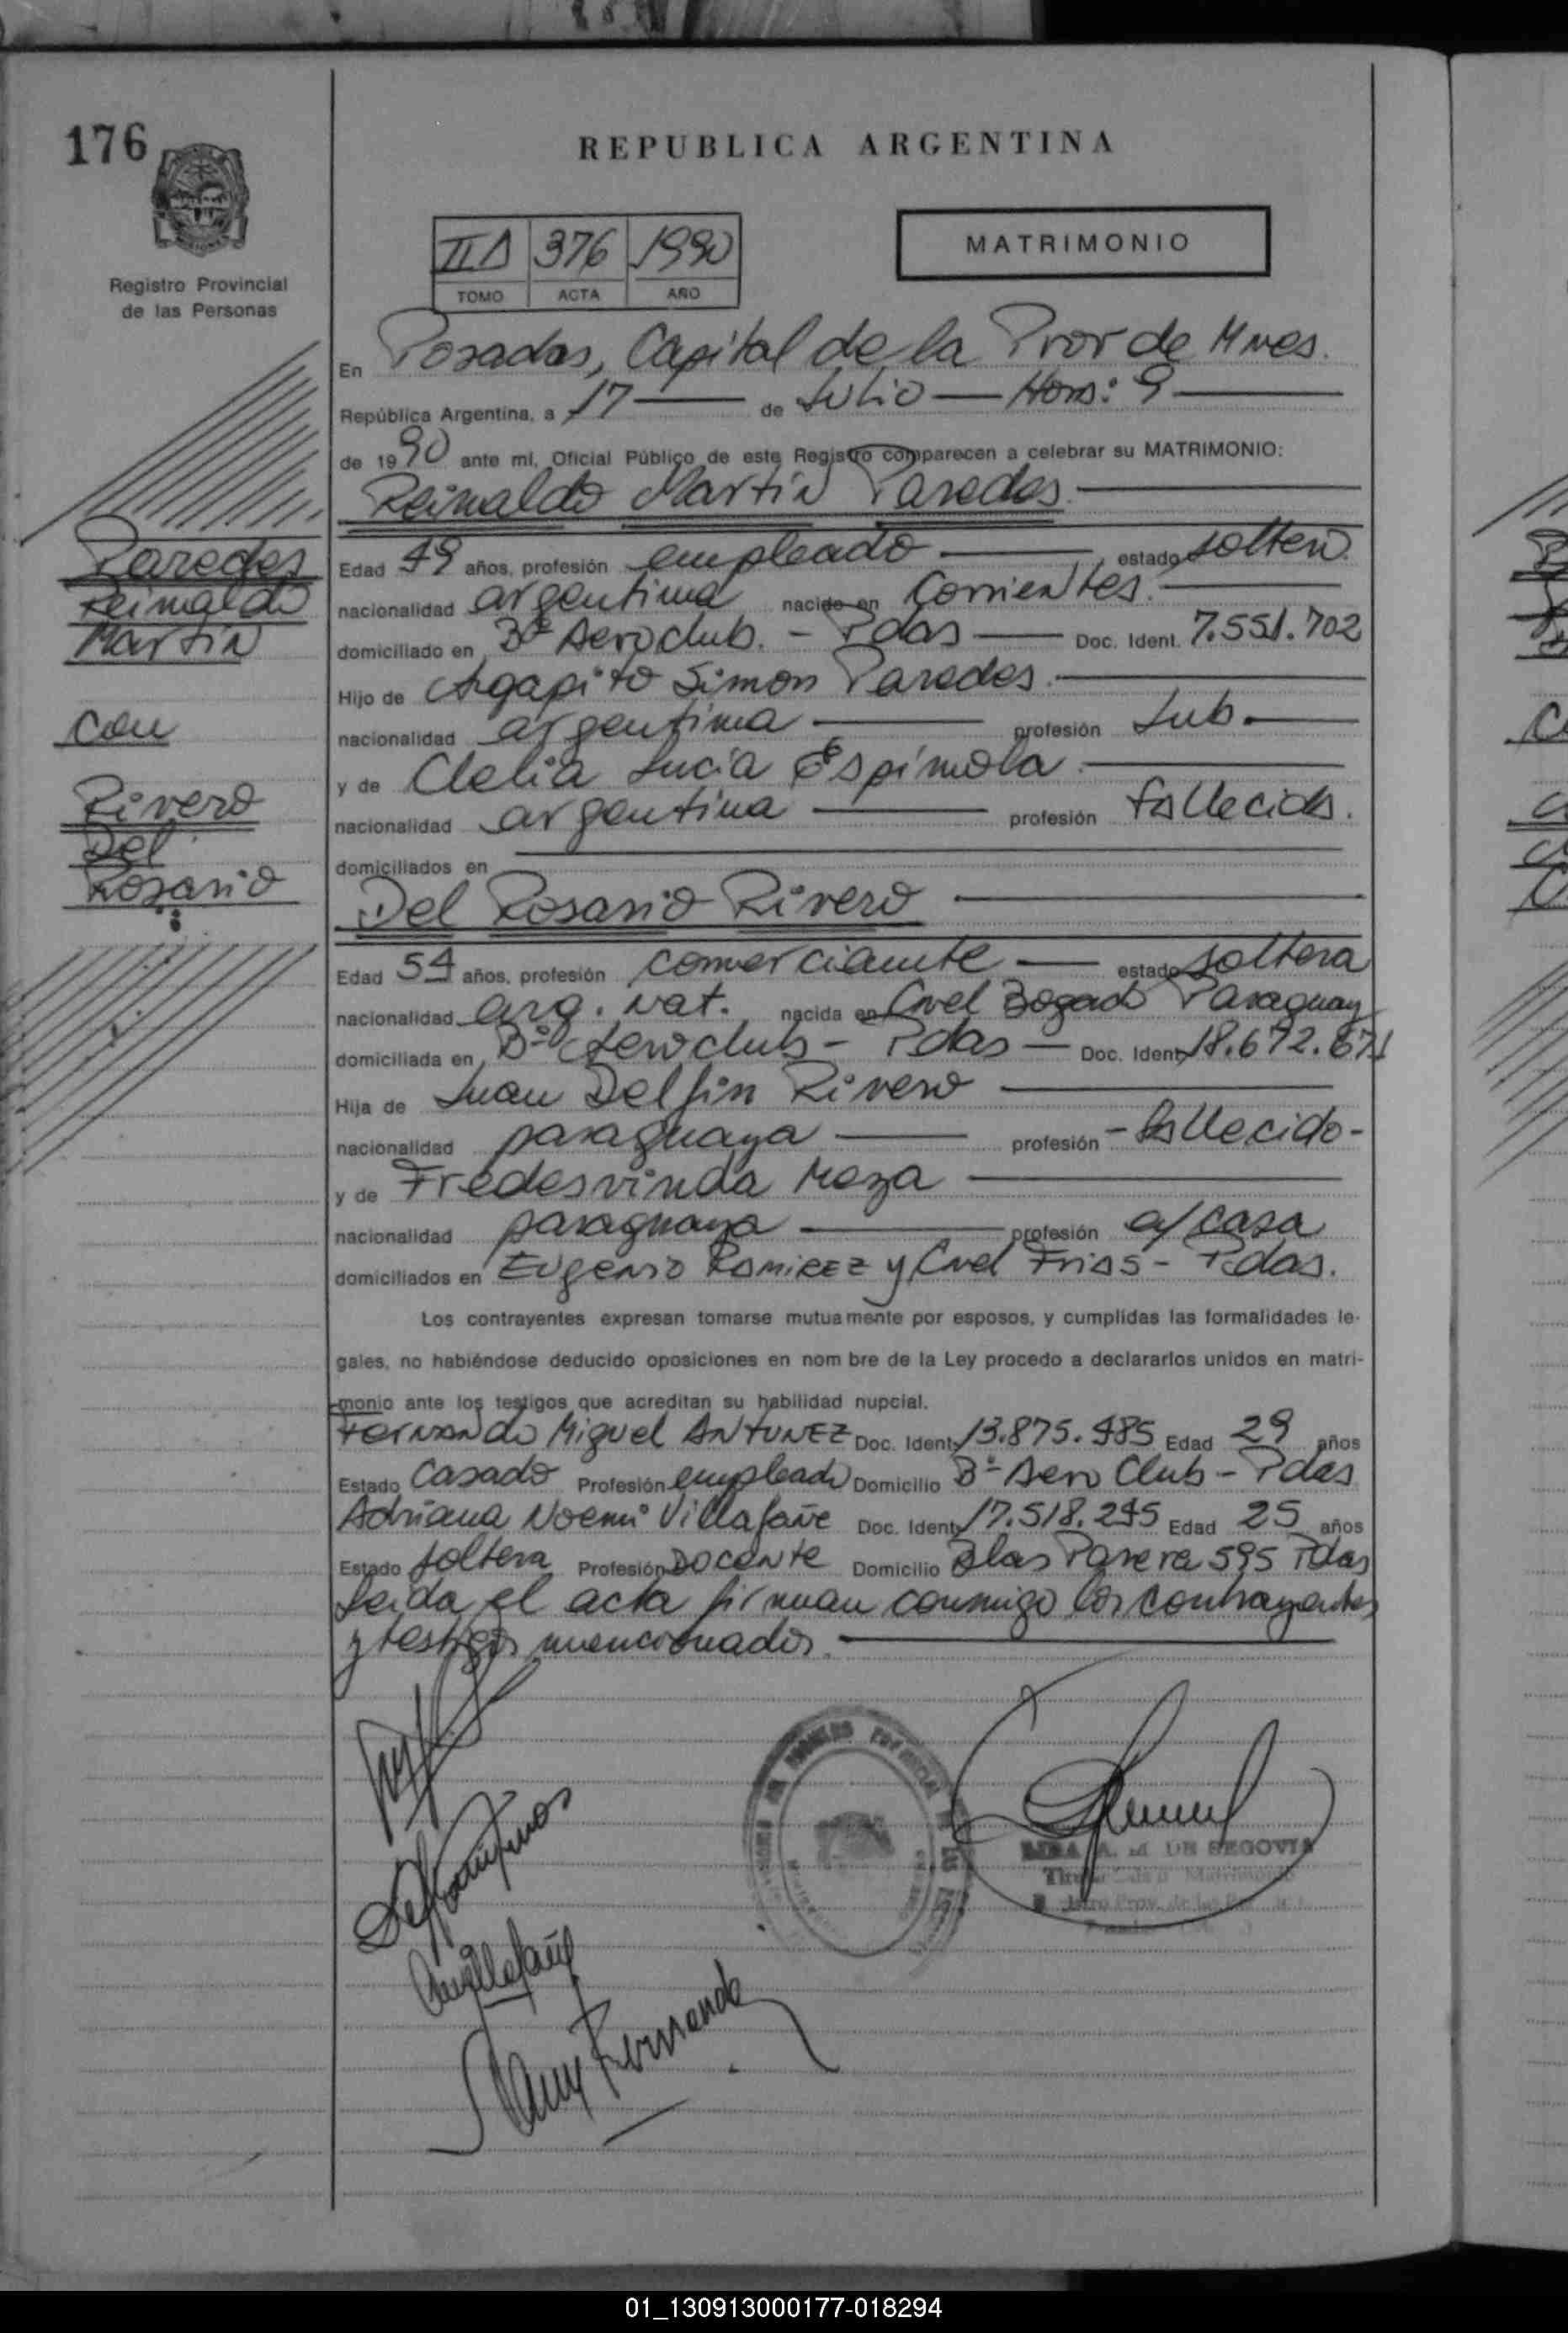 176
REPUBLICA ARGENTINA
Registro Provincial
de las Personas
II 376 1990
TOMO ACTA AÑO
MATRIMONIO
En Posadas, Capital de la Prov de Mnes.
República Argentina, a 17 de Julio Hora: 9
de 1990 ante mí, Oficial Público de este Registro comparecen a celebrar su MATRIMONIO:
Reinaldo Martin Paredes
Paredes
Reinaldo
Martin
con
Rivero
Del
Rosario
Edad 49 años, profesión empleado estado soltero
nacionalidad argentina nacido en Corrientes.
domiciliado en Bº Aeroclub. - Pdas Doc. Ident. 7.551.702
Hijo de Agapito Simon Paredes.
nacionalidad argentina profesión Jub.
y de Clelia Lucia Espimola.
nacionalidad argentina profesión fallecida.
domiciliados en
Del Rosario Rivero
Edad 54 años, profesión comerciante estado soltera
nacionalidad arg. nat. nacida en Cnel Bogado Paraguay
domiciliada en Bº Aeroclub - Pdas Doc. Ident. 18.672.671
Hija de Juan Delfin Rivero
nacionalidad paraguaya profesión - fallecido -
y de Fredesvinda Meza
nacionalidad paraguaya profesión a/casa
domiciliados en Eugenio Ramirez y Cnel Frias - Pdas.
Los contrayentes expresan tomarse mutuamente por esposos, y cumplidas las formalidades le-
gales, no habiéndose deducido oposiciones en nom bre de la Ley procedo a declararlos unidos en matri-
monio ante los testigos que acreditan su habilidad nupcial.
Fernando Miguel ANTUNEZ Doc. Ident. 13.875.485 Edad 29 años
Estado Casado Profesión empleado Domicilio Bº Aero Club - Pdas
Adriana Noemi Villafañe Doc. Ident. 17.518.245 Edad 25 años
Estado soltera Profesión Docente Domicilio Blas Parera 595 Pdas
Leida el acta firman conmigo los contrayentes
y testigos mencionados.
A. M. DE SEGOVIA
Fernando
01_130913000177-018294